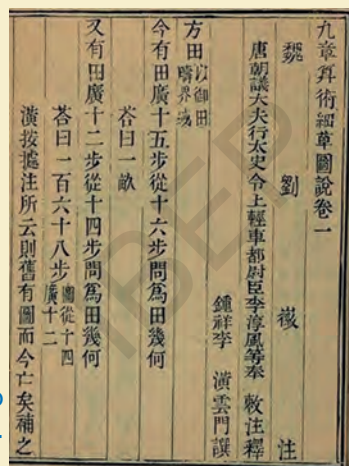 九章算術細草圖說卷一
魏 劉 徽 注
唐朝議大夫行太史令上輕車都尉臣李淳風等奉 敕注釋
鍾祥李 潢雲門譔
方田以御田疇界域
今有田廣十五步從十六步問爲田幾何
荅曰一畝
又有田廣十二步從十四步問爲田幾何
荅曰一百六十八步圖從十四廣十二
潢按據注所云則舊有圖而今亡矣補之